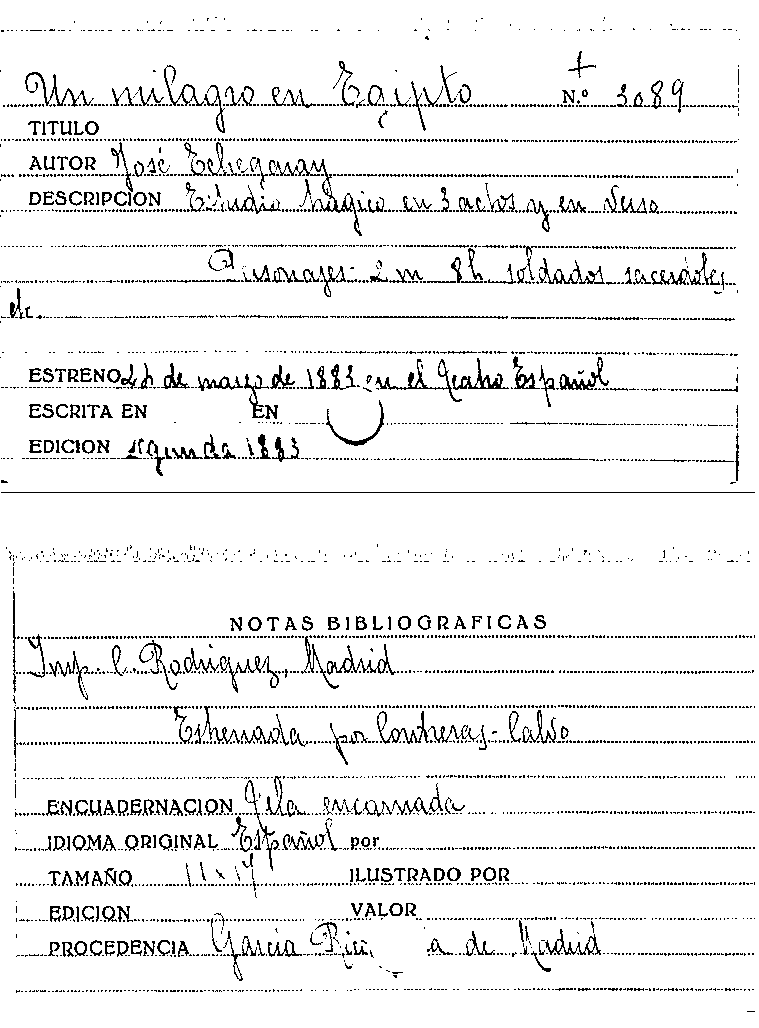 Un milagro en Egipto N.º 3089
TITULO
AUTOR José Echegaray
DESCRIPCION Estudio trágico en 3 actos y en verso
Personajes- 2 m 8h soldados sacerdotes
etc.
ESTRENO 24 de marzo de 1883 en el Teatro Español
ESCRITA EN EN
EDICION segunda 1883
NOTAS BIBLIOGRAFICAS
Imp. C. Rodriguez, Madrid
Estrenada por Contreras-Calvo
ENCUADERNACION Tela encarnada
IDIOMA ORIGINAL Español por
TAMAÑO 11 x 17 ILUSTRADO POR
EDICION VALOR
PROCEDENCIA García Rico, a de Madrid